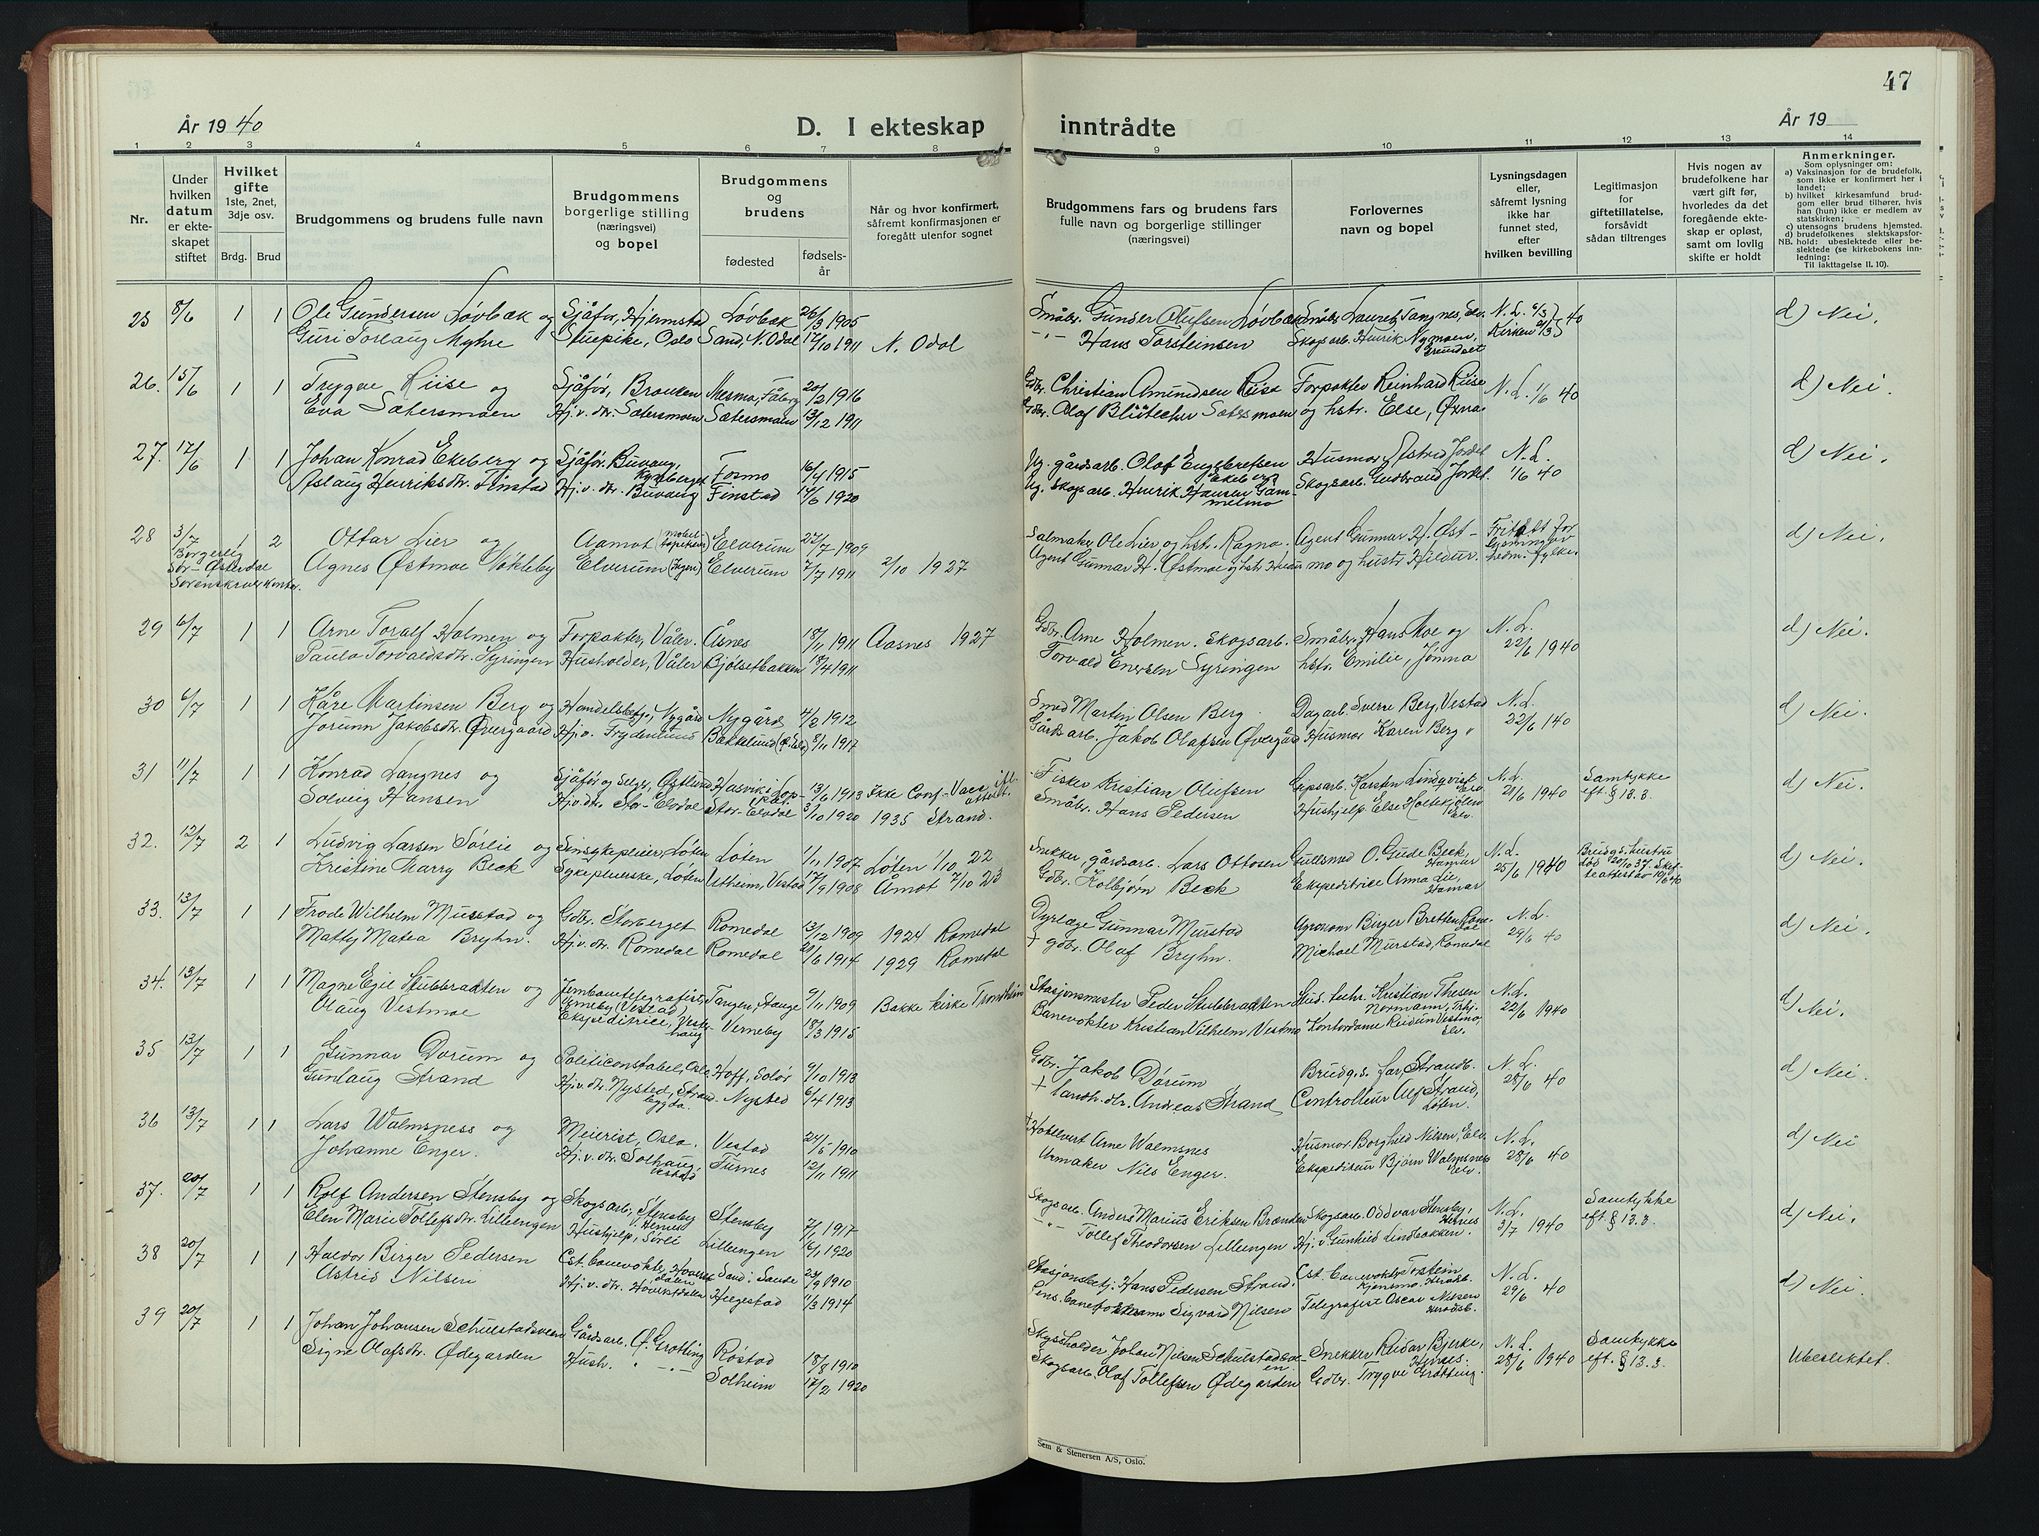 47
År 1940
D. I ekteskap
inntrådte
År 19
1 2 3 4 5 6 7 8 9 10 11 12 13 14
Nr.
Under hvilken datum er ekteskapet stiftet
Hvilket gifte 1ste, 2net, 3dje osv.
Brdg. Brud
Brudgommens og brudens fulle navn
Brudgommens borgerlige stilling (næringsvei) og bopel
Brudgommens og brudens
fødested
fødselsår
Når og hvor konfirmert, såfremt konfirmasjonen er foregått utenfor sognet
Brudgommens fars og brudens fars fulle navn og borgerlige stillinger (næringsvei)
Forlovernes navn og bopel
Lysningsdagen eller, såfremt lysning ikke har funnet sted, efter hvilken bevilling
Legitimasjon for giftetillatelse, forsåvidt sådan tiltrenges
Hvis nogen av brudefolkene har vært gift før, hvorledes da det foregående ekteskap er opløst, samt om lovlig skifte er holdt
Anmerkninger.
Som oplysninger om:
a) Vaksinasjon for de brudefolk, som ikke er konfirmert her i landet;
b) hvilket kirkesamfund brudgom eller brud tilhører, hvis han (hun) ikke er medlem av statskirken;
c) utensogns brudens hjemsted.
d) brudefolkenes slektskapsforhold: ubeslektede eller beslektede (se kirkebokens innledning:
NB.
Til iakttagelse II. 10).
25 8/6 1 1 Ole Gundersen Løvbæk og Sjåfør, Hjermstad Løvbæk 26/3 1905 Småbr. Gunder Olufsen Løvbæk Småbr. Lauretz Tangnes, N. L. d) Nei.
Guri Torlaug Myhre Stuepike, Oslo Sand, N. Odal 17/10 1911 N. Odal -"- Hans Torsteinsen Skogsarb. Henrik Nymoen, Grundset Kirken
26. 15/6 1 1 Trygve Riise og Sjåfør, Mesna, Fåberg 20/2 1916 Gbr. Christian Amundsen Riise Forpakter Reinhard Riise N. L. 1/6 40 d) Nei.
Eva Sætersmoen Hj. v. dtr. Sætersmoen Sætersmoen 13/12 1911 Gbr. Olaf Blütecher Sætersmoen og hstr. Else, Øxna
27. 17/6 1 1 Johan Konrad Ekeberg og Sjåfør, Buvang, Fosmo 16/4 1915 Ug. gårdsarb. Olaf Engebretsen Ekeberg Husmor Astrid Jordet N. L. d) Nei.
Aslaug Henriksdtr. Finstad Hj. v. dtr. Buvang Finstad 14/6 1920 Ug. Skogsarb. Henrik Hansen Gammelmo Skogsarb. Gudbrand Jordet. 1/6 40
28 3/7 1 2 Ottar Lier og Aamot Elverum 27/7 1909 Salmaker Ole Lier og hst. Ragna. Agent Gunnar H. Øst- Fritatt for d) Nei.
Borgerlig Sør-Østerdal Sorenskriverkontor. Agnes Østmoe Nökleby Elverum Elverum 7/7 1911 2/10 1927 Agent Gunnar H. Østmoe og hstr. mo og hustr. Hildur. lysning av fylke.
29 6/7 1 1 Arne Toralf Holmen og Forpakter, Våler. Åsnes 18/11 1911 Aasnes 1927 Gbr. Arne Holmen. Skogsarb. Småbr. Hans Moe og N. L. d) Nei.
Paula Torvaldsdtr. Syringen Husholder, Våler Bjølsetbakken 13/4 1911 Torvald Enersen Syringen hstr. Emilie, Jømna 22/6 1940
30 6/7 1 1 Kåre Martinsen Berg og Handelsbetj., Nygård Nygård 4/2 1912 Smed Martin Olsen Berg Dagarb. Sverre Berg, Vestad N. L. d) Nei.
Jorunn Jakobsdtr. Øvergaard Hj. v. Frydenlund Bakkelund 8/11 1917 Gårdsarb. Jakob Olafsen Øvergård Husmor Karen Berg 22/6 40
31 11/7 1 1 Konrad Langnes og Sjåfør og selger, Østlund Hasvik i Lop- 13/6 1913 Ikke Conf- Fisker Kristian Olufsen Gipsarb. Karsten Lindqvist N. L. Samtykke d) Nei.
Solveig Hansen Hj. v. dtr. Stor-Elvdal Stor-Elvdal 3/10 1920 1935 Strand. Småbr. Hans Pedersen Hushjelp Else Holtekjølen, Elv. 29/6 1940 eft. § 13.3.
32. 12/7 2 1 Ludvig Larsen Sørlie og Sinsykepleier, Løten Løten 1/11 1907 Løten 1/10 22 Snekker, gårdsarb. Lars Ottosen Gullsmed O. Gude Beck, Hamar N. L. Brudgs. hustru død 20/10 37. d) Nei.
Kristine Marry Beck Sykepleierske, Løten Utheim, Vestad 17/9 1908 Åmot 7/10 23 Gbr. Kolbjørn Beck Ekspeditrice Anna Lie, Hamar 25/6 1940
33. 13/7 1 1 Frode Wilhelm Mustad og Gbr. Storberget Romedal 13/12 1909 1924 Romedal Dyrlæge Gunnar Murstad Agronom Birger Bretten, N. L. d) Nei.
Matty Matea Bryhn. Hj. v. dtr. Romedal Romedal 21/6 1914 1929 Romedal + gbr. Olaf Bryhn. Michael Murstad, Romedal 29/6 40
34. 13/7 1 1 Magne Egil Stubbrækten og Jernbanetelegrafist, Verneby, Vestad, Tangen, Stange 9/11 1909 Bakke kirke Trondheim Stasjonsmester Peder Stubbrækten Stud. techn. Kristian Thesen Normann, N. L. d) Nei.
Olaug Vestmoe Ekspeditrice, Vesthaug Verneby 18/3 1915 Banevokter Kristian Vilhelm Vestmo Kontordame Reidun Vestmo, Elv. 22/6 1940
35 13/7 1 1 Gunnar Dørum og Politiconstabel, Oslo Hoff, Solør 9/10 1913 Gbr. Jakob Dørum Brudg.s. far, N. L. d) Nei.
Gunlaug Strand Hj. v. dtr. Nysted, Strandbygda. Nysted 6/4 1913 + Landh.dlr. Andreas Strand Controlleur Alf Strand, Løten. 28/6 40
36 13/7 1 1 Lars Walmsness og Meierist, Oslo. Vestad 24/5 1910 + Hotelvert Arne Walmsnes Husmor Borghild Nilsen, Elv. N. L. d) Nei
Johanne Enger. Hj. v. dtr. Solhaug, Vestad Furnes 12/11 1911 Urmaker Nils Enger. Ekspeditør Bjørn Walmsnes Elv. 28/6 40
37. 20/7 1 1 Rolf Andersen Stensby og Skogsarb., Stensby v. Hernes Stensby 7/1 1917 Skogsarb. Anders Marius Eriksen Brænden Skogsarb. Oddvar Stensby, Hernes N. L. Samtykke d) Nei.
Elen Marie Tollefsdtr. Lilleengen Hushjelp, Sørli Lilleengen 16/1 1920 -"- Tollef Theodorsen Lilleengen Hj. v. Gunhild Lindbakken. 3/7 1940 eft. § 13.3.
38 20/7 1 1 Haldor Birger Pedersen Cst. banevokter, Sand i Sande 23/9 1910 Stasjonsbetj. Hans Pedersen Strand. Cst. banevokter Torstein Kjensmo, N. L. d) Nei.
Astrid Nilsen Hj. v. dtr. Hoversdalen Helgestad 11/3 1914 Pens. Sigvard Nilsen Telegrafist Oscar Nilsen 29/6 40
39 20/7 1 1 Johan Johansen Schulstadsveen Gårdsarb. Ø. Grøtting Røstad 18/8 1910 Johan Nilsen Schulstadsveen Snekker Reidar Bjerke, Hernes. N. L. Samtykke Ubeslektet.
Signe Olafsdtr. Ødegarden Hush. " -"- Solheim 17/2 1920 Skogsarb. Olaf Tollefsen Ødegarden Gbr. Trygve Grøtting. 28/6 1940 eft. § 13.3.
Sem & Stenersen A/S, Oslo.